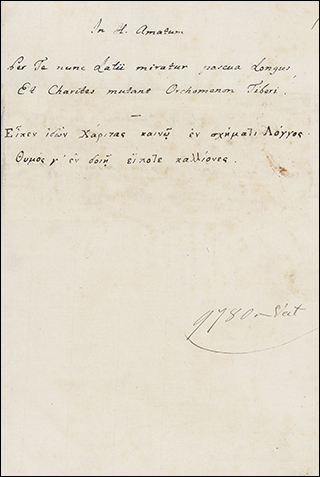 In H. Amatum
Per Te nunc Latii miratur pascua Longus,
Et Charites mutant Orchomenon Tiberi.
Εἶπεν ἰδὼν Χάριτας καινῷ ἐν σχήματι Λόγγος·
Θυμός γ' ἐν δοιῇ εἴ ποτε καλλίονες.
9780 Vat